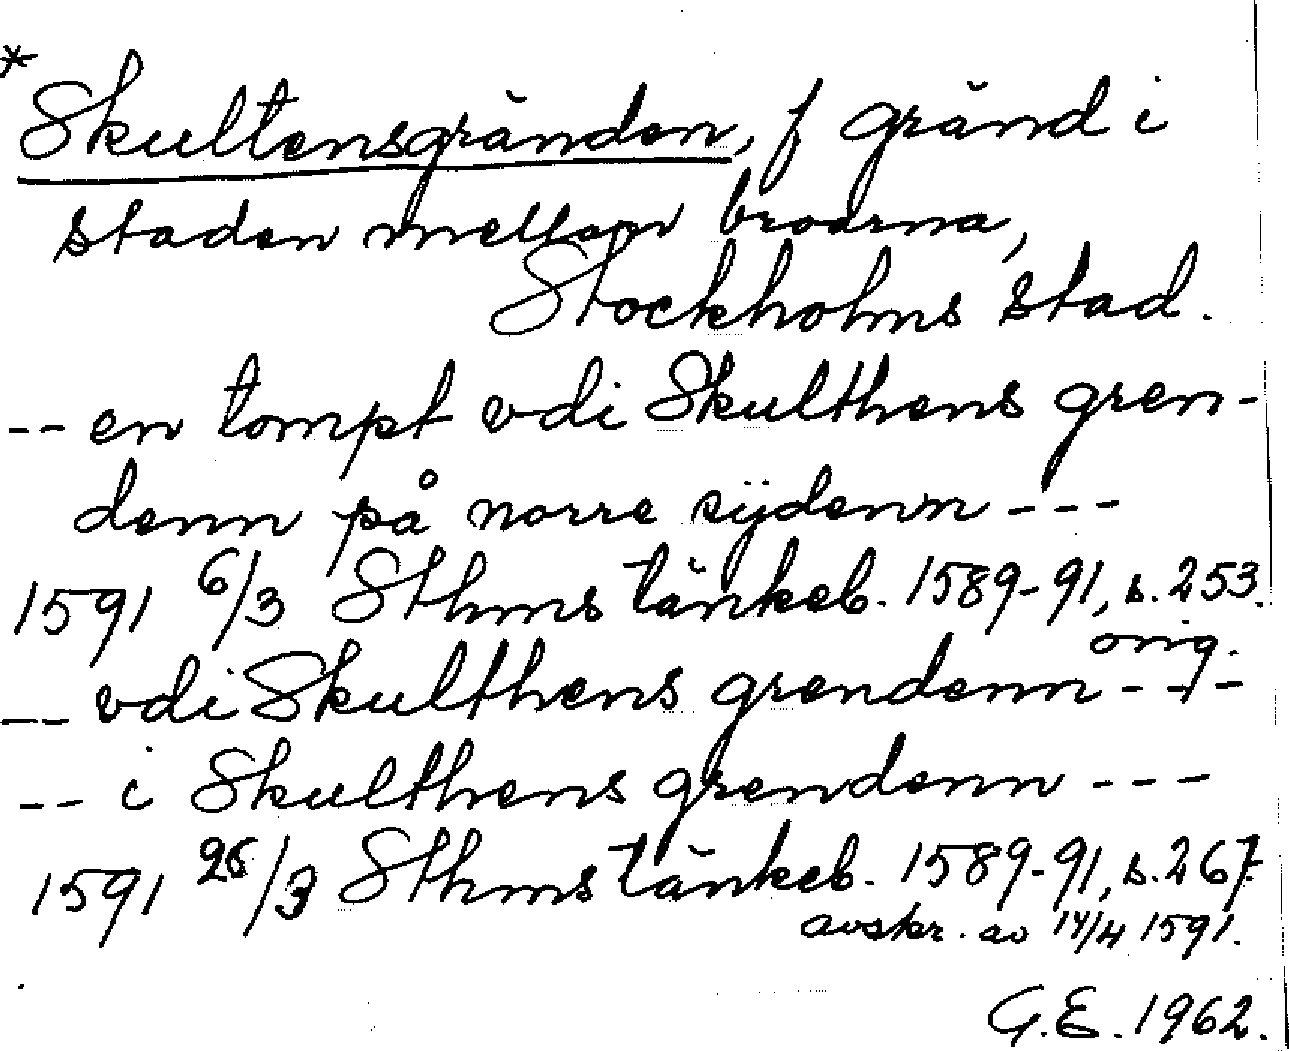 * Skultensgränden, f gränd i
staden mellan broarna,
Stockholms stad.
-- en tompt vdi Skulthens gren-
denn på norre sijdenn ---
1591 6/3 Sthms tänkeb. 1589-91, s. 253.
orig.
-- vdi Skulthens grendenn ---
-- i Skulthens grendenn ---
1591 /3 Sthms tänkeb. 1589-91, s. 267.
avskr. av 14/4 1591.
G.E. 1962.